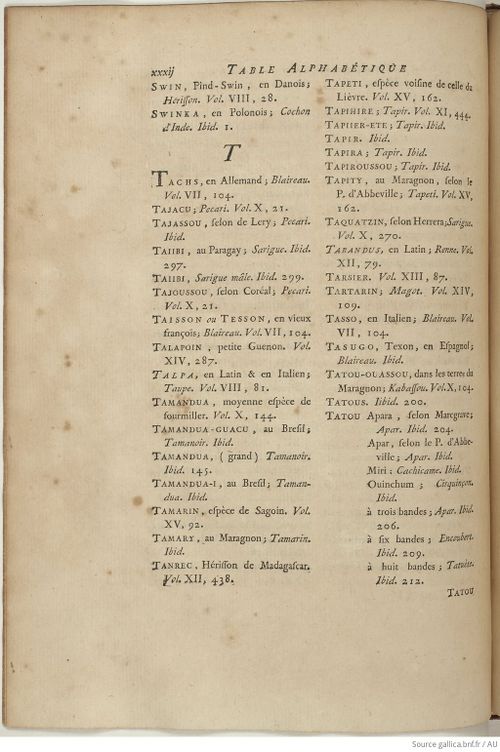 xxxij TABLE ALPHABÉTIQUE
SWIN, Pind-Swin, en Danois;
Hérisson. Vol. VIII, 28.
SWINKA, en Polonois; Cochon
d'Inde. Ibid. 1.
T
TACHS, en Allemand; Blaireau.
Vol. VII, 104.
TAJACU; Pecari. Vol. X, 21.
TAJASSOU, selon de Lery; Pecari.
Ibid.
TAIIBI, au Paragay; Sarigue. Ibid.
297.
TAIIBI, Sarigue mâle. Ibid. 299.
TAJOUSSOU, selon Coréal; Pecari.
Vol. X, 21.
TAISSON ou TESSON, en vieux
françois; Blaireau. Vol. VII, 104.
TALAPOIN, petite Guenon. Vol.
XIV, 287.
TALPA, en Latin & en Italien;
Taupe. Vol. VIII, 81.
TAMANDUA, moyenne espèce de
fourmiller. Vol. X, 144.
TAMANDUA-GUACU, au Bresil;
Tamanoir. Ibid.
TAMANDUA, (grand) Tamanoir.
Ibid. 145.
TAMANDUA-I, au Bresil; Taman-
dua. Ibid.
TAMARIN, espèce de Sagoin. Vol.
XV, 92.
TAMARY, au Maragnon; Tamarin.
Ibid.
TANREC, Hérisson de Madagascar.
Vol. XII, 438.
TAPETI, espèce voisine de celle du
Lièvre. Vol. XV, 162.
TAPIHIRE; Tapir. Vol. XI, 444.
TAPIIER-ETE; Tapir. Ibid.
TAPIR. Ibid.
TAPIRA; Tapir. Ibid.
TAPIROUSSOU; Tapir. Ibid.
TAPITY, au Maragnon, selon le
P. d'Abbeville; Tapeti. Vol. XV,
162.
TAQUATZIN, selon Herrera; Sarigue.
Vol. X, 270.
TARANDUS, en Latin; Renne. Vol.
XII, 79.
TARSIER. Vol. XIII, 87.
TARTARIN; Magot. Vol. XIV,
109.
TASSO, en Italien; Blaireau. Vol.
VII, 104.
TASUGO, Texon, en Espagnol;
Blaireau. Ibid.
TATOU-OUASSOU, dans les terres du
Maragnon; Kabassou. Vol. X, 104.
TATOUS. Ibid. 200.
TATOU Apara, selon Marcgrave;
Apar. Ibid. 204.
Apar, selon le P. d'Abbe-
ville; Apar. Ibid.
Miri: Cachicame. Ibid.
Ouinchum; Cirquinçon.
Ibid.
à trois bandes; Apar. Ibid.
206.
à six bandes; Encoubert.
Ibid. 209.
à huit bandes; Tatuète.
Ibid. 212.
TATOU
Source gallica.bnf.fr / AU